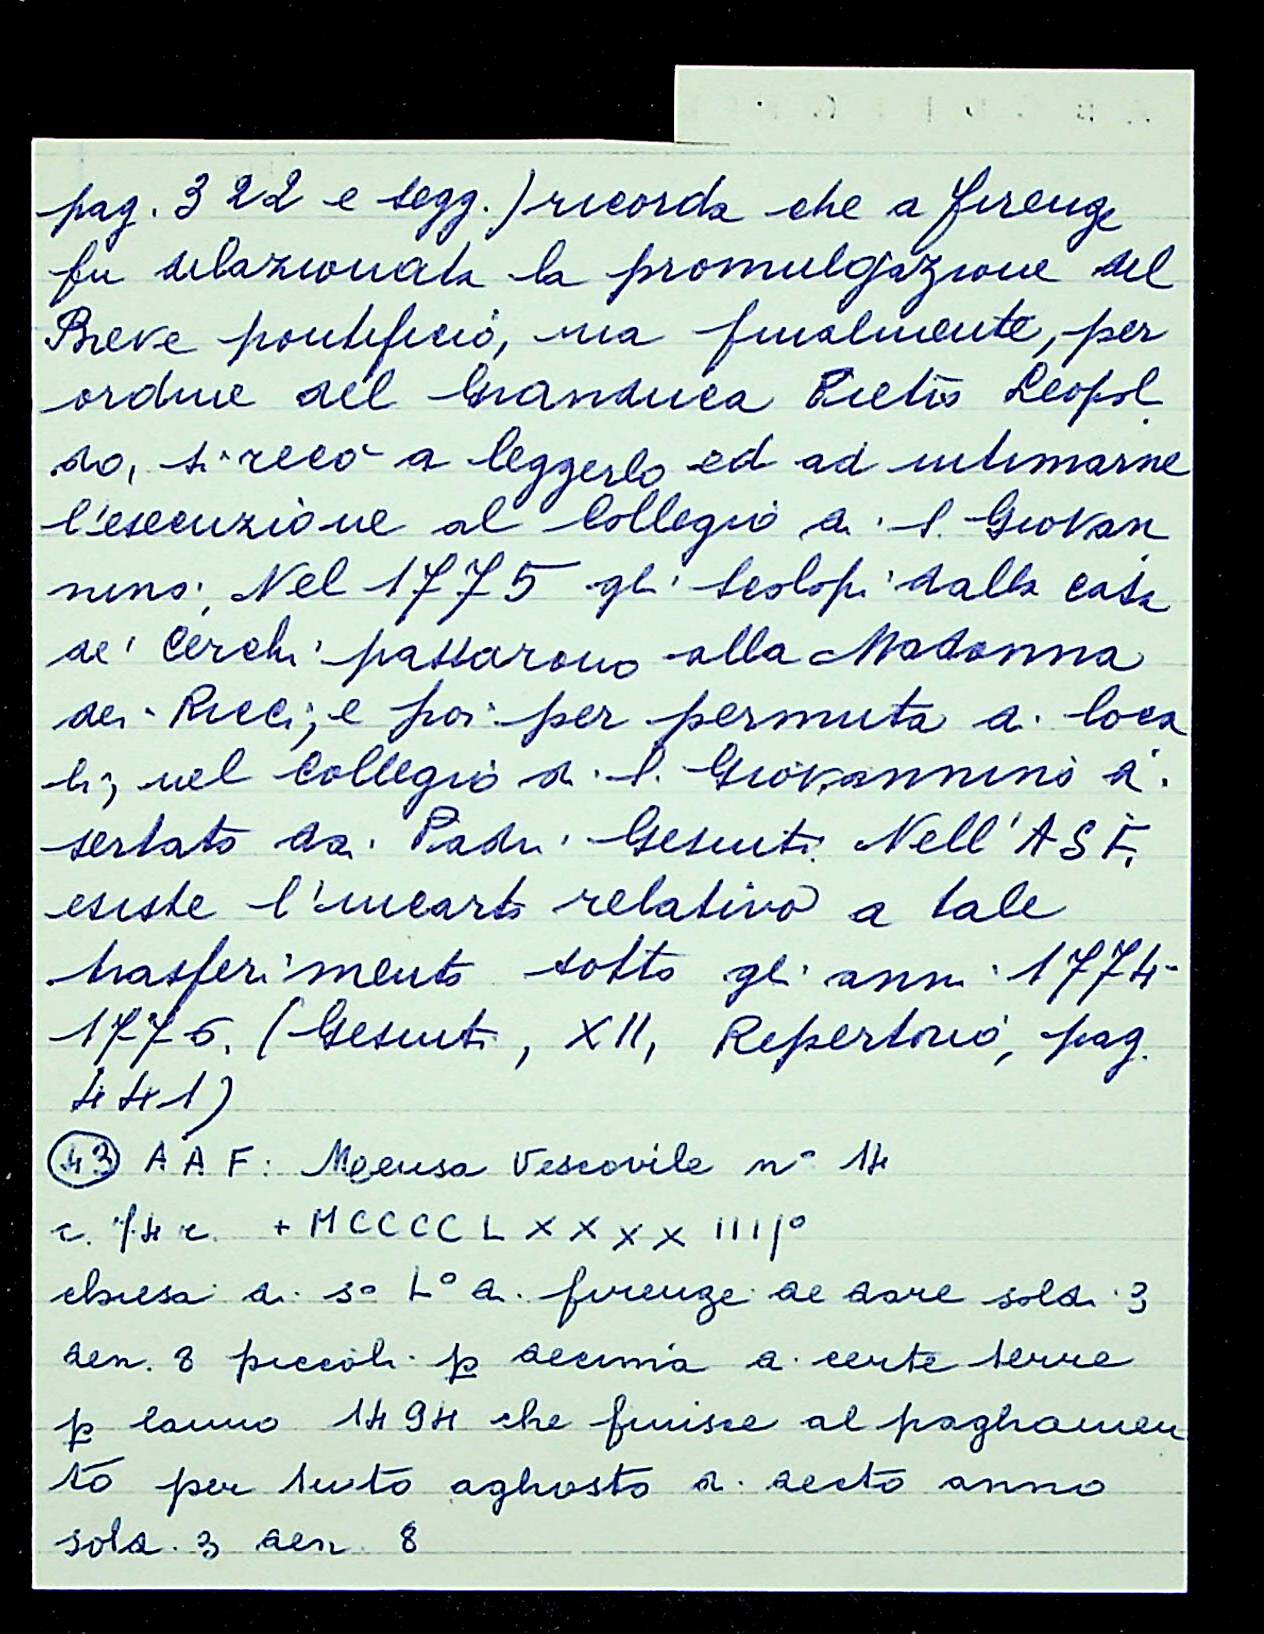 pag. 322 e segg.) ricorda che a firenze
fu dilazionata la promulgazione del
Breve pontificio, ma finalmente, per
ordine del Granduca Pietro Leopol
do, si recò a leggerlo ed ad intimarne
l'esecuzione al Collegio di S. Giovan
nino; Nel 1775 gli Scolopi dalla casa
de' Cerchi passarono alla Madonna
dei Ricci; e poi per permuta di loca
li; nel Collegio di S. Giovannino di
sertato dai Padri Gesuiti. Nell'ASF.
esiste l'incarto relativo a tale
trasferimento sotto gli anni 1774-
1776. (Gesuiti, XII, Repertorio, pag.
441)
43 AAF: Mensa Vescovile n° 14
c. 74 r. + MCCCCLXXXXIIII°
chiesa di s° L° di firenze de dare soldi 3
den. 8 piccoli p decima di certe terre
p lanno 1494 che finisce al paghamen
to per tuto aghosto di decto anno
sold. 3 den. 8